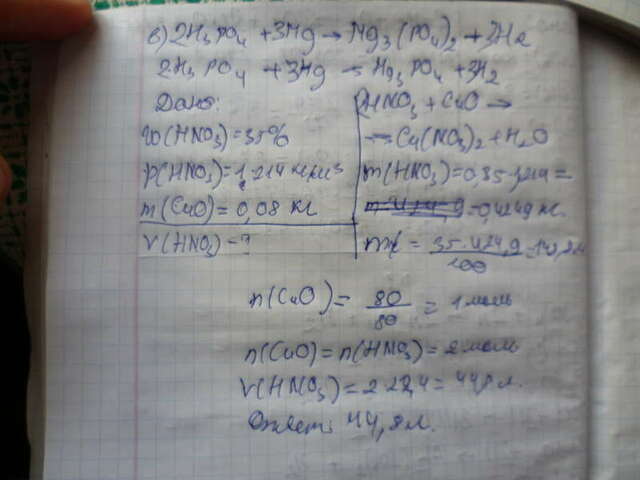 в) 2H3PO4 + 3Mg → Mg3(PO4)2 + 3H2
2H3PO4 + 3Mg → Mg3PO4 + 3H2
Дано:
W(HNO3) = 35%
p(HNO3) = 1,214
m(CuO) = 0,08 кг
V(HNO3) - ?
2HNO3 + CuO →
→ Cu(NO3)2 + H2O
m(HNO3) = 0,35 · 1,214 =
= 0,4249 кг.
= 35 · 424,9 / 100 =
n(CuO) = 80 / 80 = 1 моль
n(CuO) = n(HNO3) = 2 моль
V(HNO3) = 2 · 22,4 = 44,8 л.
Ответ: 44,8 л.